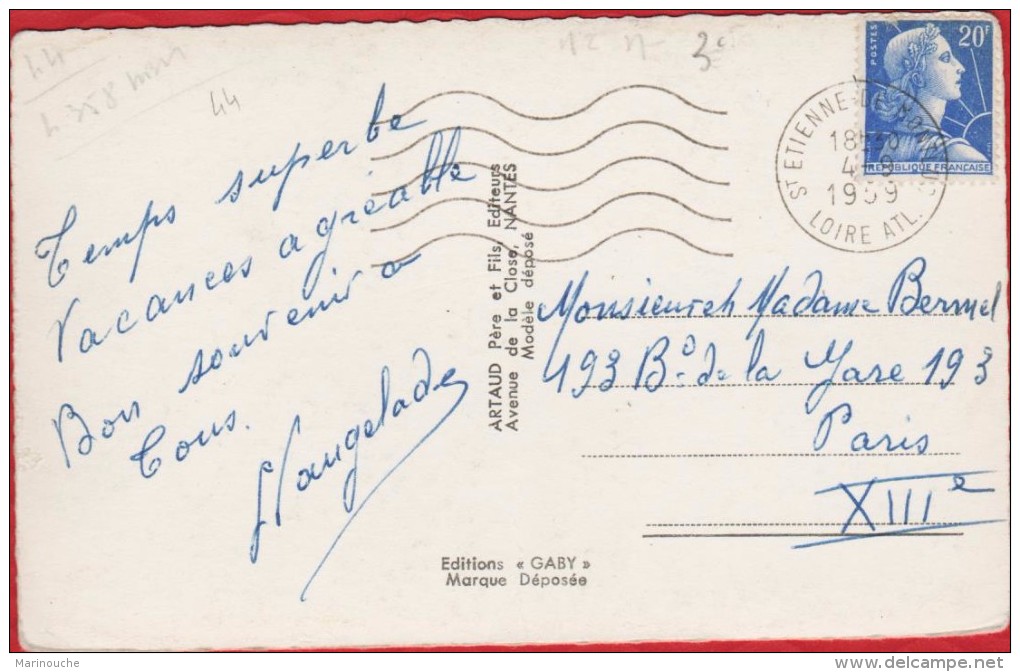 44
3€
Temps superbe
Vacances agréable
Bon souvenir a
tous.
ARTAUD Père et Fils, Editeurs
Avenue de la Close, NANTES
Modèle déposé
POSTES
20F
REPUBLIQUE FRANCAISE
ST ETIENNE-DE-MONTLUC
18H
1959
LOIRE ATL.
Monsieur et Madame Bermel
193 Bd de la Gare 193
Paris
XIIIe
Editions « GABY »
Marque Déposée
Marinouche
www.delcampe.net